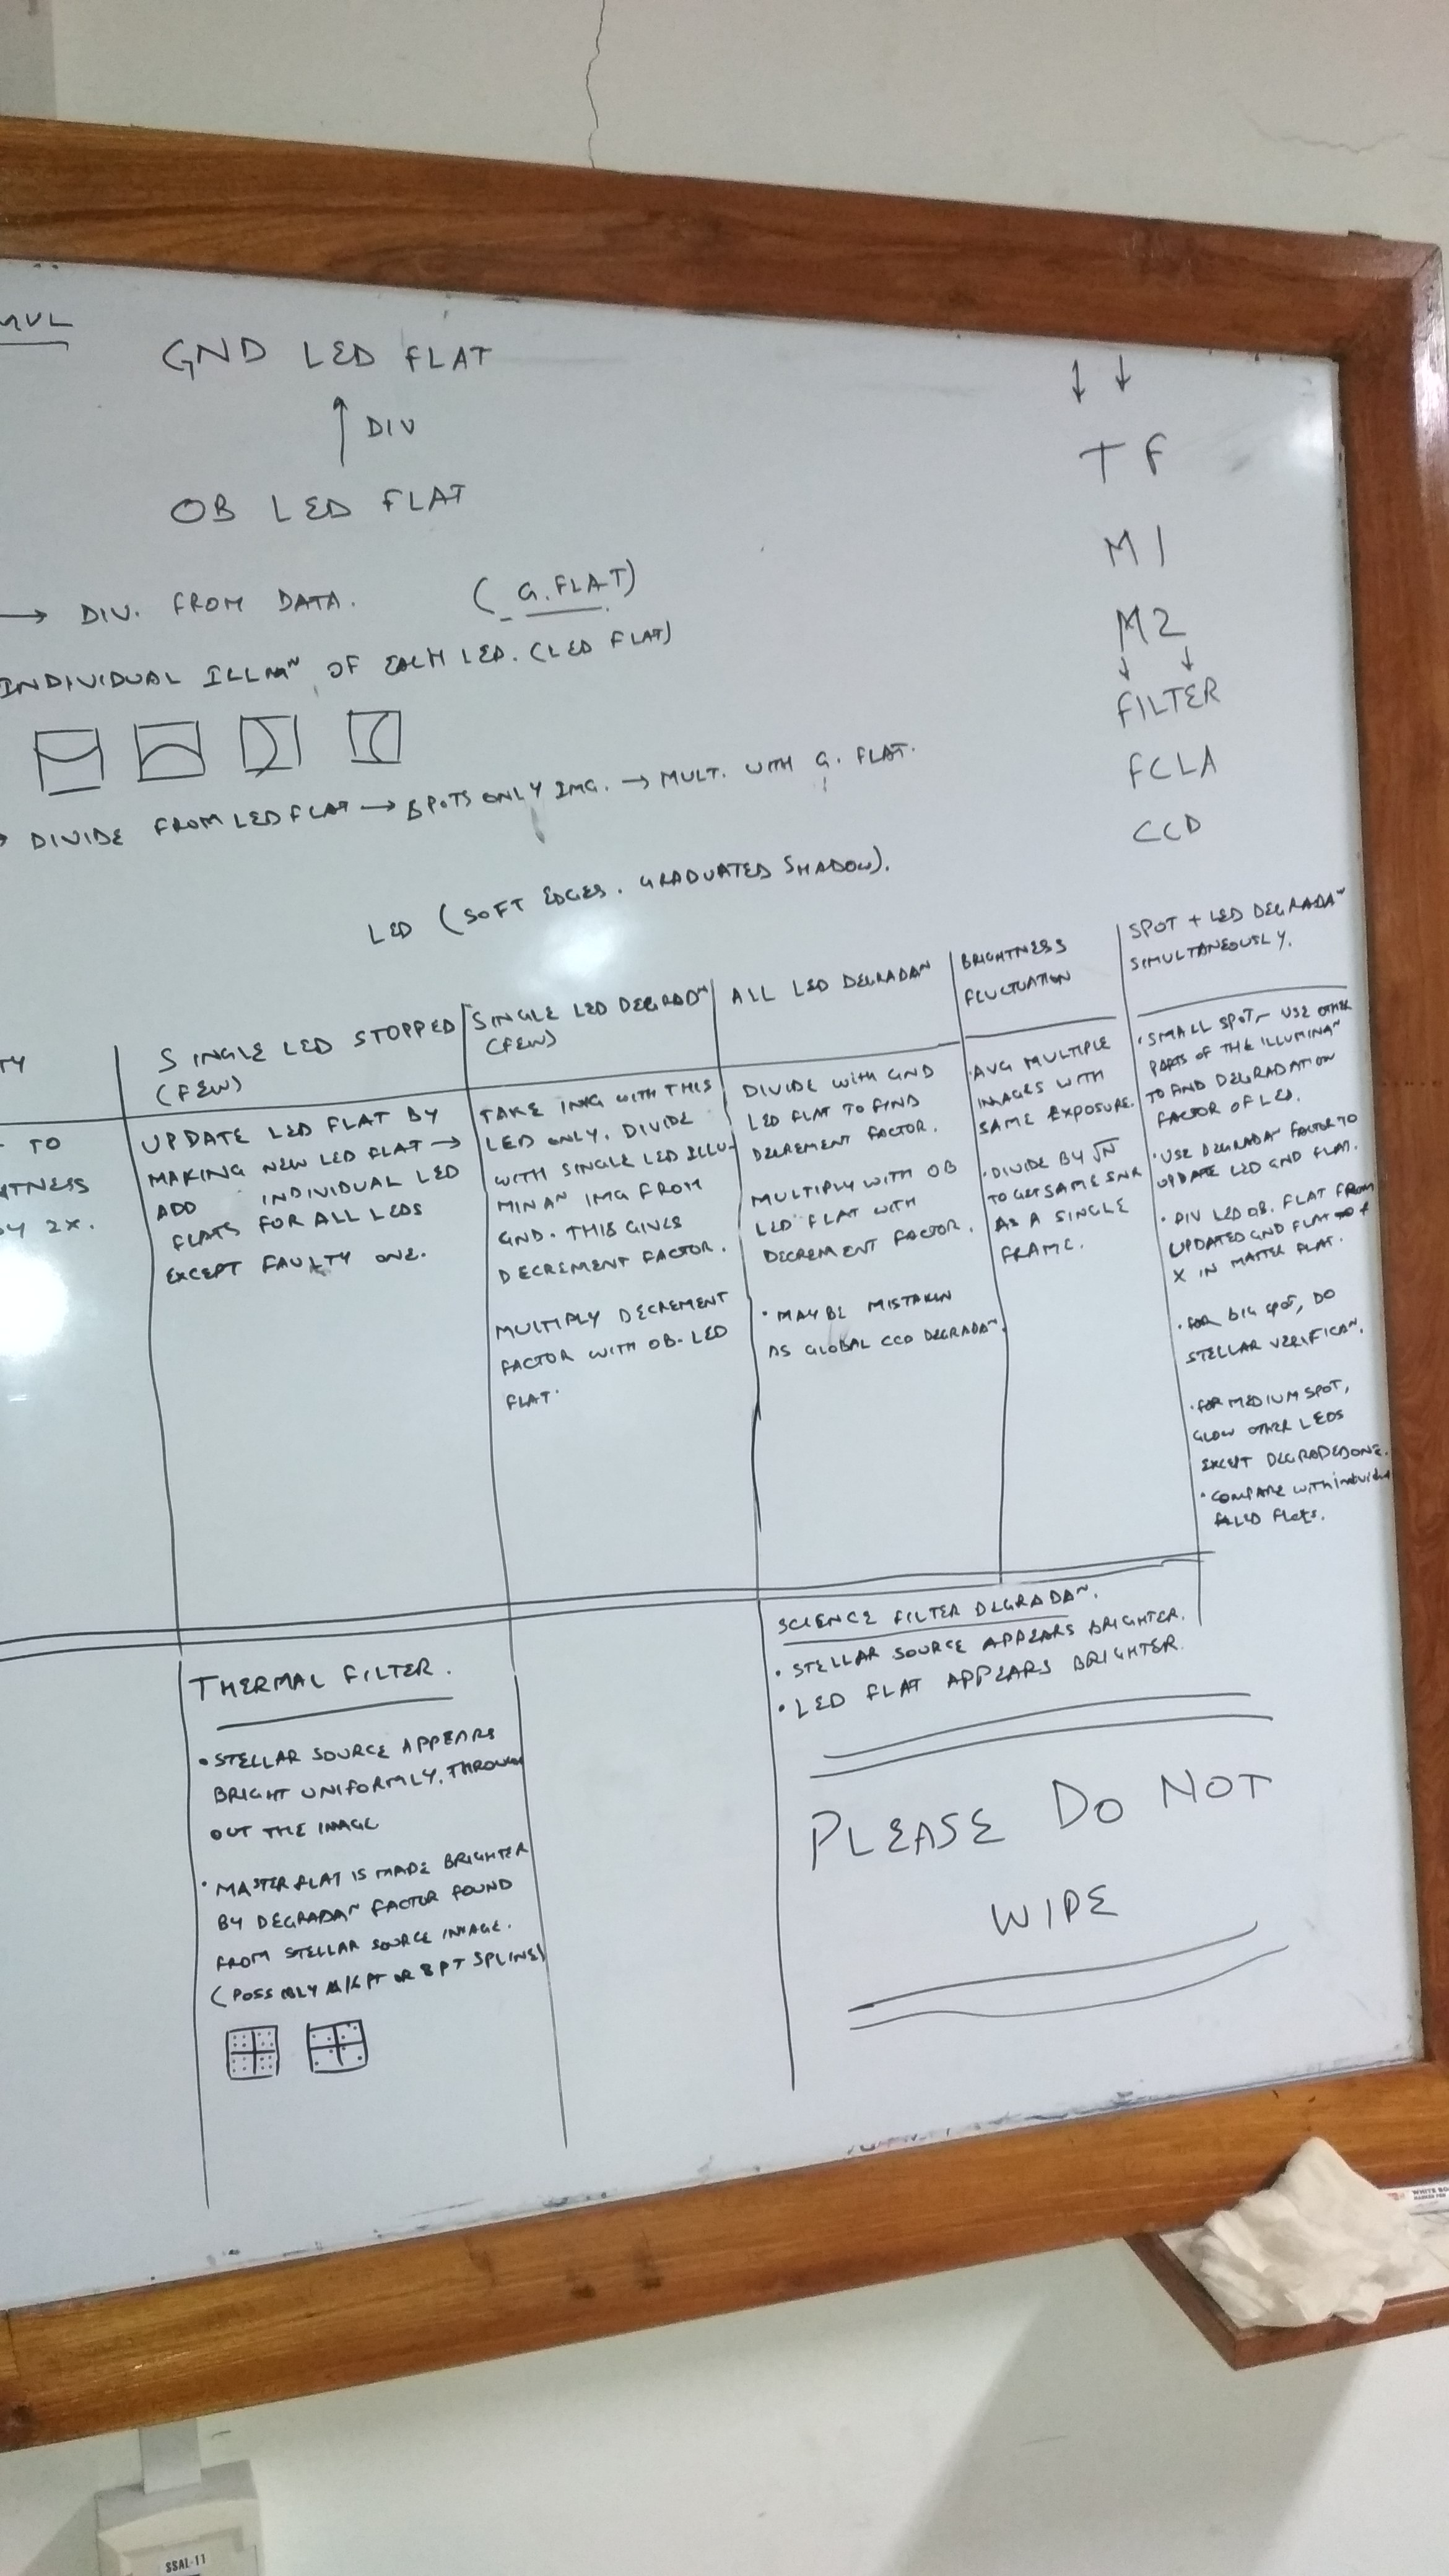 GND LED FLAT
DIV
OB LED FLAT
→ DIV. FROM DATA. (G.FLAT)
INDIVIDUAL ILLMᴺ OF EACH LED. (LED FLAT)
→ DIVIDE FROM LED FLAT → SPOTS ONLY IMG. → MULT. WITH G. FLAT.
LED (SOFT EDGES. GRADUATED SHADOW).
↓ ↓
TF
M1
M2
↓ ↓
FILTER
FCLA
CCD
TY
TO
BY 2X.
SINGLE LED STOPPED
(FEW)
UPDATE LED FLAT BY
MAKING NEW LED FLAT →
ADD INDIVIDUAL LED
FLATS FOR ALL LEDS
EXCEPT FAULTY ONE.
SINGLE LED DEGRADᴺ
(FEW)
TAKE IMG WITH THIS
LED ONLY. DIVIDE
WITH SINGLE LED ILLU-
MINAᴺ IMG FROM
GND. THIS GIVES
DECREMENT FACTOR.
MULTIPLY DECREMENT
FACTOR WITH OB-LED
FLAT.
ALL LED DEGRADAᴺ
DIVIDE WITH GND
LED FLAT TO FIND
DECREMENT FACTOR.
MULTIPLY WITH OB
LED FLAT WITH
DECREMENT FACTOR.
• MAY BE MISTAKEN
AS GLOBAL CCD DEGRADAᴺ.
BRIGHTNESS
FLUCTUATION
• AVG MULTIPLE
IMAGES WITH
SAME EXPOSURE.
• DIVIDE BY √N
TO GET SAME SNR
AS A SINGLE
FRAME.
SPOT + LED DEGRADAᴺ
SIMULTANEOUSLY.
• SMALL SPOT – USE OTHER
PARTS OF THE ILLUMINAᴺ
TO FIND DEGRADATION
FACTOR OF LED.
• USE DEGRADAᴺ FACTOR TO
UPDATE LED GND FLAT.
• DIV LED OB. FLAT FROM
UPDATED GND FLAT &
X IN MASTER FLAT.
• FOR BIG SPOT, DO
STELLAR VERIFICAᴺ.
• FOR MEDIUM SPOT,
GLOW OTHER LEDS
EXCEPT DEGRADED ONE.
• COMPARE WITH
LED Flats.
THERMAL FILTER.
• STELLAR SOURCE APPEARS
BRIGHT UNIFORMLY, THROUGH
OUT THE IMAGE
• MASTER FLAT IS MADE BRIGHTER
BY DEGRADAᴺ FACTOR FOUND
FROM STELLAR SOURCE IMAGE.
(POSSIBLY 16 PT OR 8 PT SPLINE)
SCIENCE FILTER DEGRADAᴺ.
• STELLAR SOURCE APPEARS BRIGHTER.
• LED FLAT APPEARS BRIGHTER.
PLEASE DO NOT
WIPE
SSAL-11